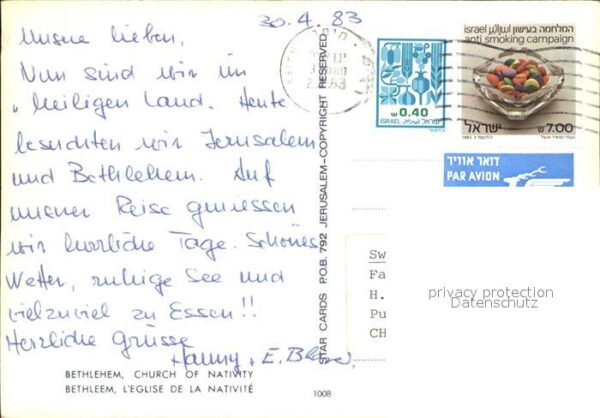 30.4.83
Unsere lieben,
Nun sind wir im
"heiligen Land. Heute
besuchten wir Jerusalem
und Bethlehem. Auf
unserer Reise geniessen
wir herrliche Tage. Schönes
Wetter, ruhige See und
vielzuviel zu Essen!!
Herzliche Grüsse
Hanny + E.
BETHLEHEM, CHURCH OF NATIVITY
BETHLEEM, L'EGLISE DE LA NATIVITÉ
1008
STAR CARDS P.O.B. 792 JERUSALEM-COPYRIGHT RESERVED
₪ 0.40
ISRAEL إسرائيل ישראל
המלחמה בעישון إسرائيل israel
anti smoking campaign
ישראל ₪7.00
דואר אוויר
PAR AVION
Sw
Fa
H.
Pu
CH
privacy protection
Datenschutz